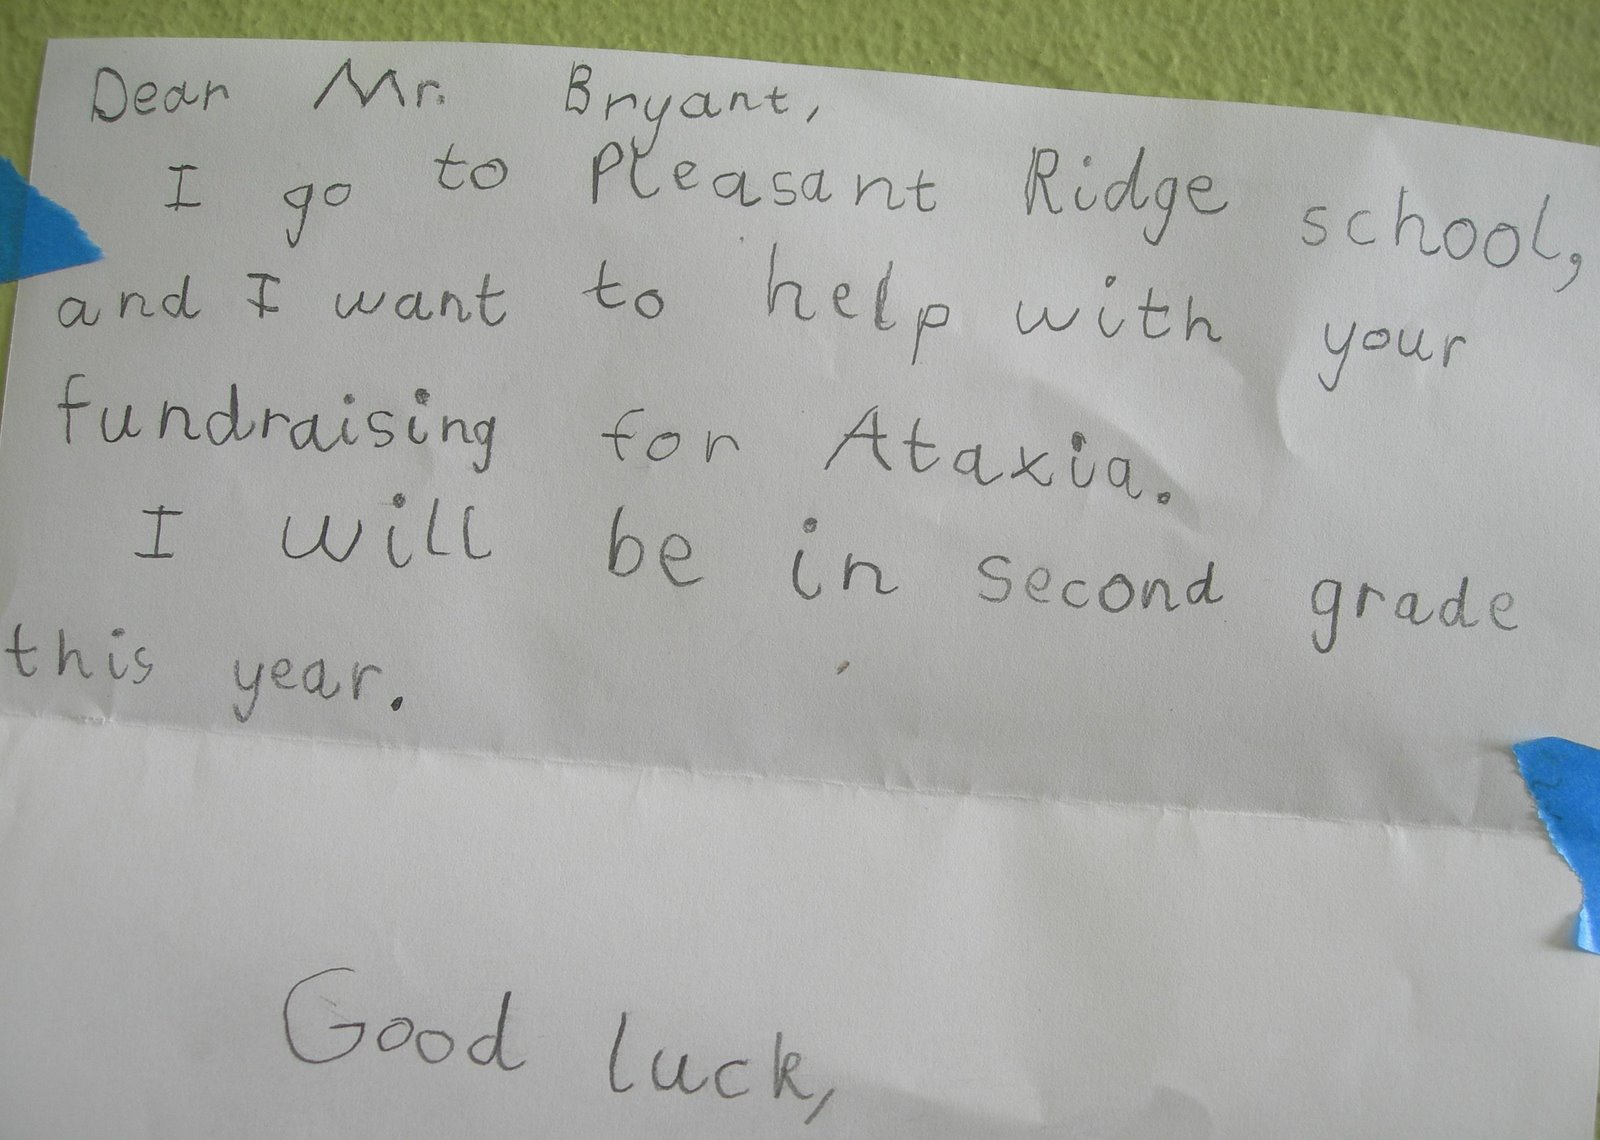 Dear Mr. Bryant,
I go to Pleasant Ridge school,
and I want to help with your
fundraising for Ataxia.
I will be in second grade
this year.
Good luck,